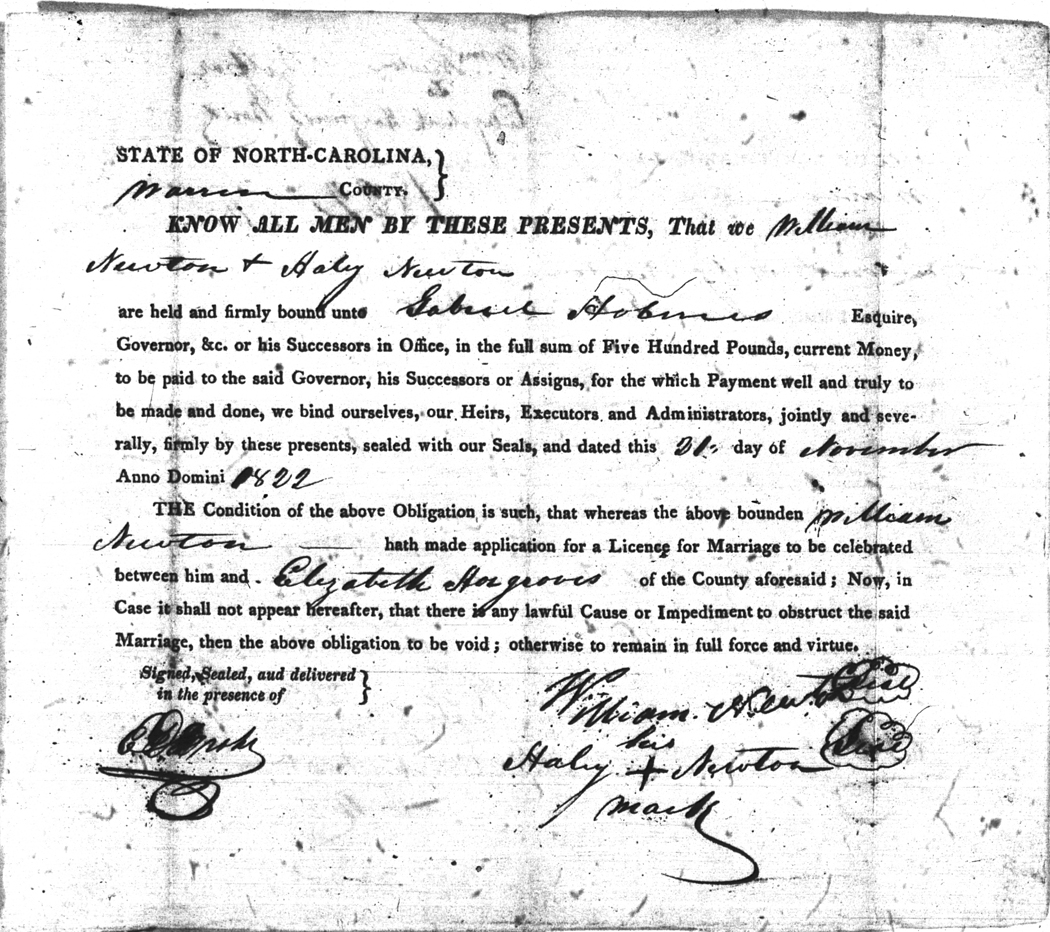 STATE OF NORTH-CAROLINA,
Warren COUNTY.
KNOW ALL MEN BY THESE PRESENTS, That we William
Newton + Haly Newton
are held and firmly bound unto Gabriel Holmes Esquire,
Governor, &c. or his Successors in Office, in the full sum of Five Hundred Pounds, current Money,
to be paid to the said Governor, his Successors or Assigns, for the which Payment well and truly to
be made and done, we bind ourselves, our Heirs, Executors and Administrators, jointly and seve-
rally, firmly by these presents, sealed with our Seals, and dated this day of November
Anno Domini 1822
THE Condition of the above Obligation is such, that whereas the above bounden William
Newton hath made application for a Licence for Marriage to be celebrated
between him and Elizabeth Hargroves of the County aforesaid; Now, in
Case it shall not appear hereafter, that there is any lawful Cause or Impediment to obstruct the said
Marriage, then the above obligation to be void; otherwise to remain in full force and virtue.
Signed, Sealed, aud delivered
in the presence of
William Newton Seal
his
Haly + Newton Seal
mark